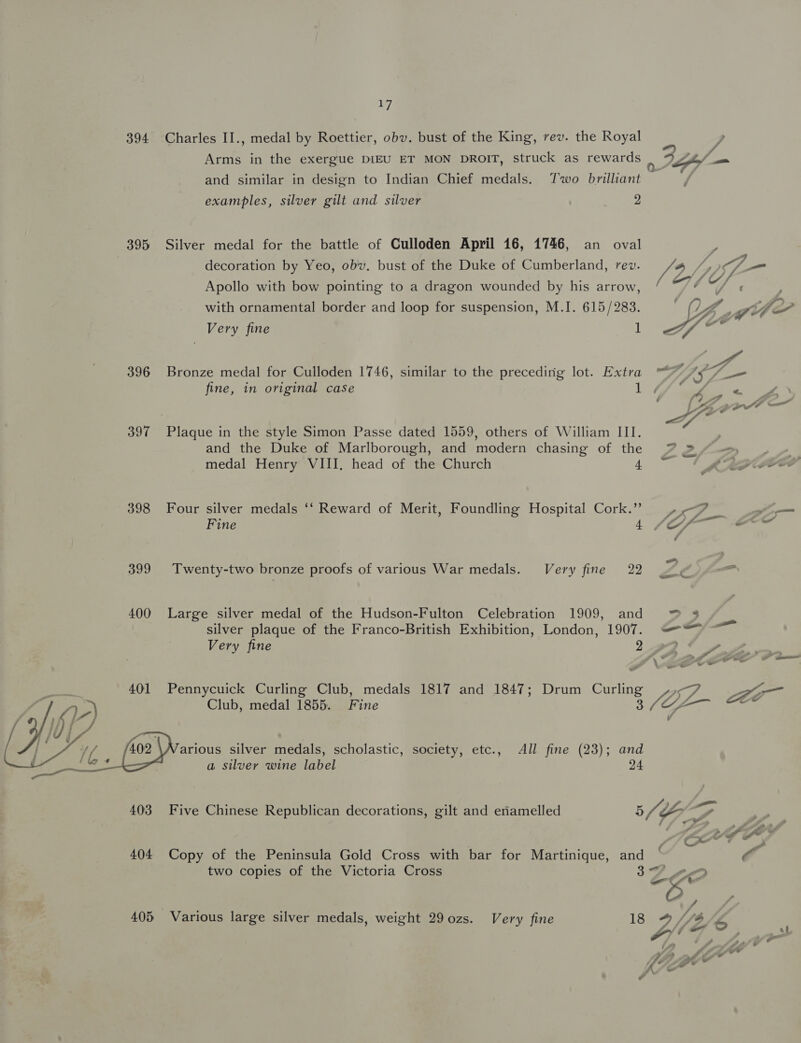 17
394 Charles II., medal by Roettier, obv. bust of the King, rev. the Royal
Arms in the exergue DIEU ET MON DROIT, struck as rewards
and similar in design to Indian Chief medals. Two brilliant
examples, silver gilt and silver 2
395 Silver medal for the battle of Culloden April 16, 1746, an oval
decoration by Yeo, obv. bust of the Duke of Cumberland, rev.
Apollo with bow pointing to a dragon wounded by his arrow,
with ornamental border and loop for suspension, M.I. 615/283.
Very fine 1
396 Bronze medal for Culloden 1746, similar to the preceding lot. Extra
fine, in original case 1
397 Plaque in the style Simon Passe dated 1559, others of William III.
and the Duke of Marlborough, and modern chasing of the
medal Henry VIII, head of the Church 4
398 Four silver medals “ Reward of Merit, Foundling Hospital Cork.”
Fine 4
399 Twenty-two bronze proofs of various War medals. Very fine 22
400 Large silver medal of the Hudson-Fulton Celebration 1909, and
silver plaque of the Franco-British Exhibition, London, 1907.
Very fine 2
401 Pennycuick Curling Club, medals 1817 and 1847; Drum Curling
Club, medal 1855. Fine 3
402 Various silver medals, scholastic, society, etc., All fine (23); and
a silver wine label 24
403 Five Chinese Republican decorations, gilt and enamelled 5
404 Copy of the Peninsula Gold Cross with bar for Martinique, and
two copies of the Victoria Cross 3
405 Various large silver medals, weight 29 ozs. Very fine 18